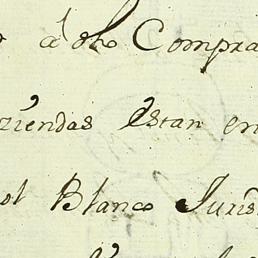 á dho Compra
ziendas Estan en
ol Blanco Juris